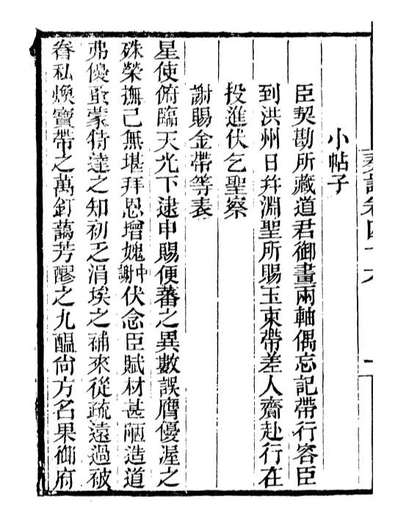 小帖子
臣契勘所藏道君御畫兩軸偶忘記帶行容臣
到洪州日幷淵聖所賜玉束帶差人齎赴行在
投進伏乞聖察
謝賜金帶等表
星使俯臨天光下逮申賜便蕃之異數誤膺優渥之
殊榮撫己無堪拜恩增媿中謝伏念臣賦材甚陋造道
弗優亟蒙待達之知初乏涓埃之補來從疏遠過被
眷私煥寶帶之萬釘藹芳醪之九醖尙方名果御府